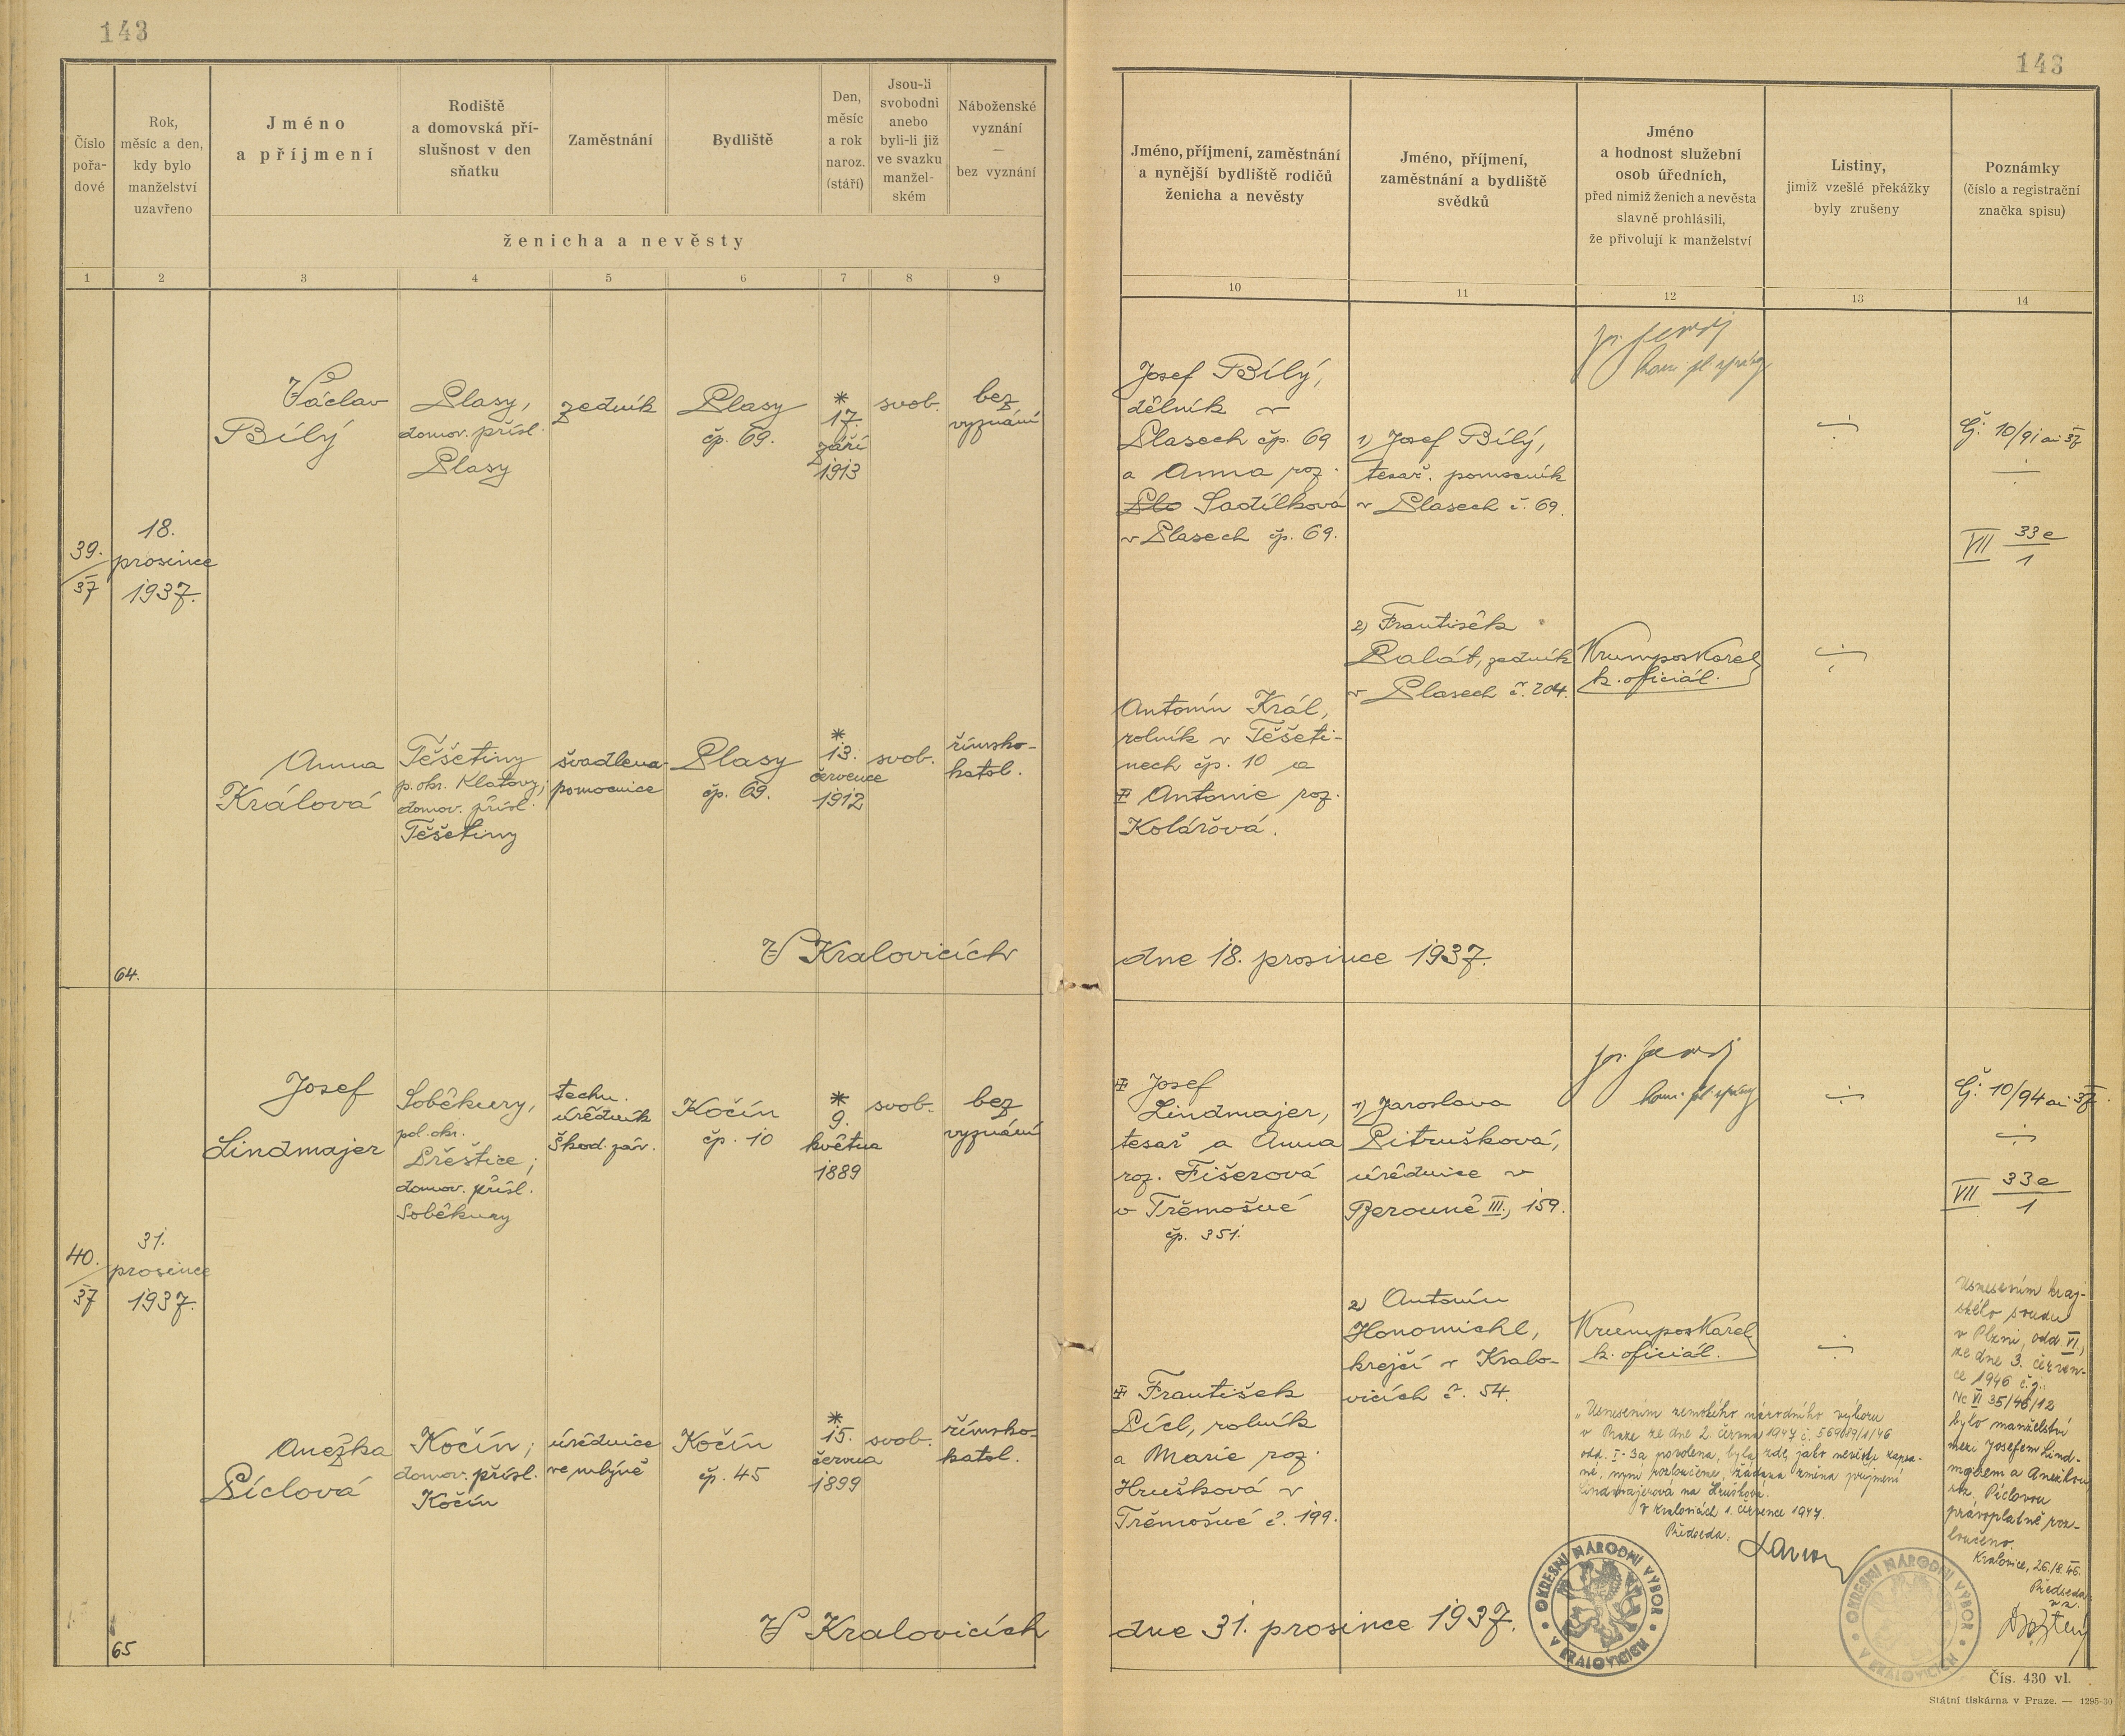 143
143
Číslo
pořa-
dové
Rok,
měsíc a den,
kdy bylo
manželství
uzavřeno
Jméno
a příjmení
Rodiště
a domovská pří-
slušnost v den
sňatku
Zaměstnání
Bydliště
Den,
měsíc
a rok
naroz.
(stáří)
Jsou-li
svobodni
anebo
byli-li již
ve svazku
manžel-
ském
Náboženské
vyznání
—
bez vyznání
ženicha a nevěsty
1 2 3 4 5 6 7 8 9
Jméno, příjmení, zaměstnání
a nynější bydliště rodičů
ženicha a nevěsty
Jméno, příjmení,
zaměstnání a bydliště
svědků
Jméno
a hodnost služební
osob úředních,
před nimiž ženich a nevěsta
slavně prohlásili,
že přivolují k manželství
Listiny,
jimiž vzešlé překážky
byly zrušeny
Poznámky
(číslo a registrační
značka spisu)
10 11 12 13 14
39.
37
18.
prosince
1937.
Václav
Bílý
Plasy,
domov. přísl.
Plasy
zedník
Plasy
čp. 69.
*
17.
září
1913
svob.
bez
vyznání
Josef Bílý,
dělník v
Plasech čp. 69
a Anna roz.
Plo Sadílková
v Plasech čp. 69.
1) Josef Bílý,
tesař. pomocník
v Plasech č. 69.
Čj. 10/91 ai 37
VII 33e
1
2) František
Palát, zedník
v Plasech č. 204.
Krumpos Karel
k. oficiál.
Anna
Králová
Těšetiny
p. okr. Klatovy;
domov. přísl.
Těšetiny
švadlena-
pomocnice
Plasy
čp. 69.
*
13.
července
1912
svob.
římsko-
katol.
Antonín Král,
rolník v Těšeti-
nech čp. 10 a
Antonie roz.
Kolářová.
V Kralovicích
dne 18. prosince 1937.
64.
40.
37
31.
prosince
1937.
Josef
Lindmajer
Soběkury,
pol. okr.
Přeštice;
domov. přísl.
Soběkury
techn.
úředník
Škod. záv.
Kočín
čp. 10
*
9.
května
1889
svob.
bez
vyznání
Josef
Lindmajer,
tesař a Anna
roz. Fišerová
v Třemošné
čp. 351.
1) Jaroslava
Pitrušková,
úřednice v
Berouně III., 159.
Čj. 10/94 ai 37.
VII 33e
1
2) Antonín
Honomichl,
krejčí v Kralo-
vicích č. 54.
Krumpos Karel
k. oficiál.
Anežka
Píclová
Kočín;
domov. přísl.
Kočín
úřednice
ve mlýně
Kočín
čp. 45
*
15.
června
1899
svob.
římsko-
katol.
František
Pícl, rolník
a Marie roz.
Hrušková v
Třemošné č. 199.
„Usnesením zemského národního výboru
v Praze ze dne 2. června 1947 č.
odd. I-3a povolena, byla zde, jako nevěsta zapsa-
né, nyní rozloučené, žádaná změna příjmení
Lindmajerová na Hrušková.
V Kralovicích 1. července 1947.
Předseda:
Usnesením kraj-
ského soudu
v Plzni, odd. VI.,
ze dne 3. červen-
ce 1946 č.j.
Nc VI 35/46/12
bylo manželství
mezi Josefem Lind-
majerem a Anežkou
roz. Píclovou
právoplatně roz-
loučeno.
Kralovice, 26./8. 46.
Předseda
OKRESNÍ NÁRODNÍ VÝBOR
V KRALOVICÍCH
OKRESNÍ NÁRODNÍ VÝBOR
V KRALOVICÍCH
V Kralovicích
dne 31. prosince 1937.
65
Čís. 430 vl.
Státní tiskárna v Praze. — 1295-30